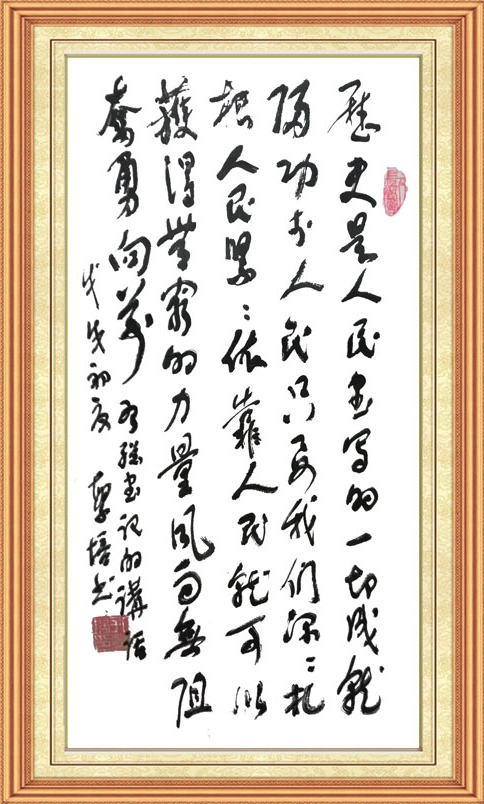 歷史是人民書写的一切成就
归功於人民只要我们深〻扎
根人民紧〻依靠人民就可以
獲得無窮的力量風雨無阻
奮勇向前 习総書记的講話
戊戌初夏